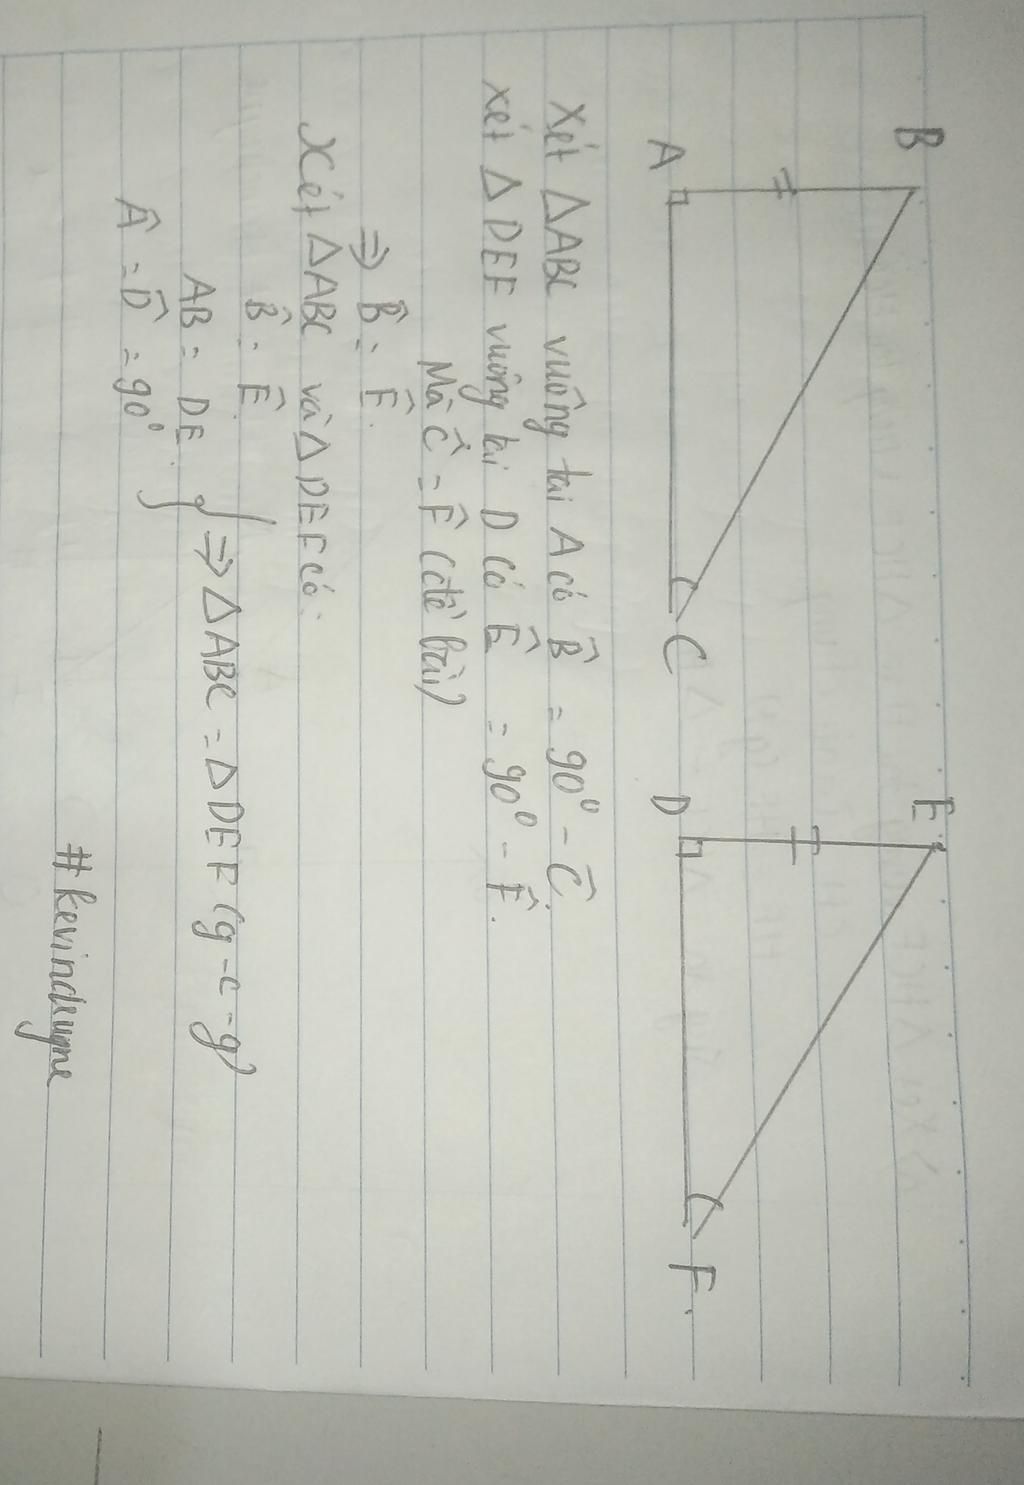 B
E
A
C
D
F.
Xét ΔABC vuông tại A có B̂ = 90° - Ĉ.
Xét ΔDEF vuông tại D có Ê = 90° - F̂.
Mà Ĉ = F̂ (đề bài)
⇒ B̂ = Ê.
Xét ΔABC và ΔDEF có:
B̂ = Ê.
AB = DE. } ⇒ ΔABC = ΔDEF (g-c-g)
Â = D̂ = 90°